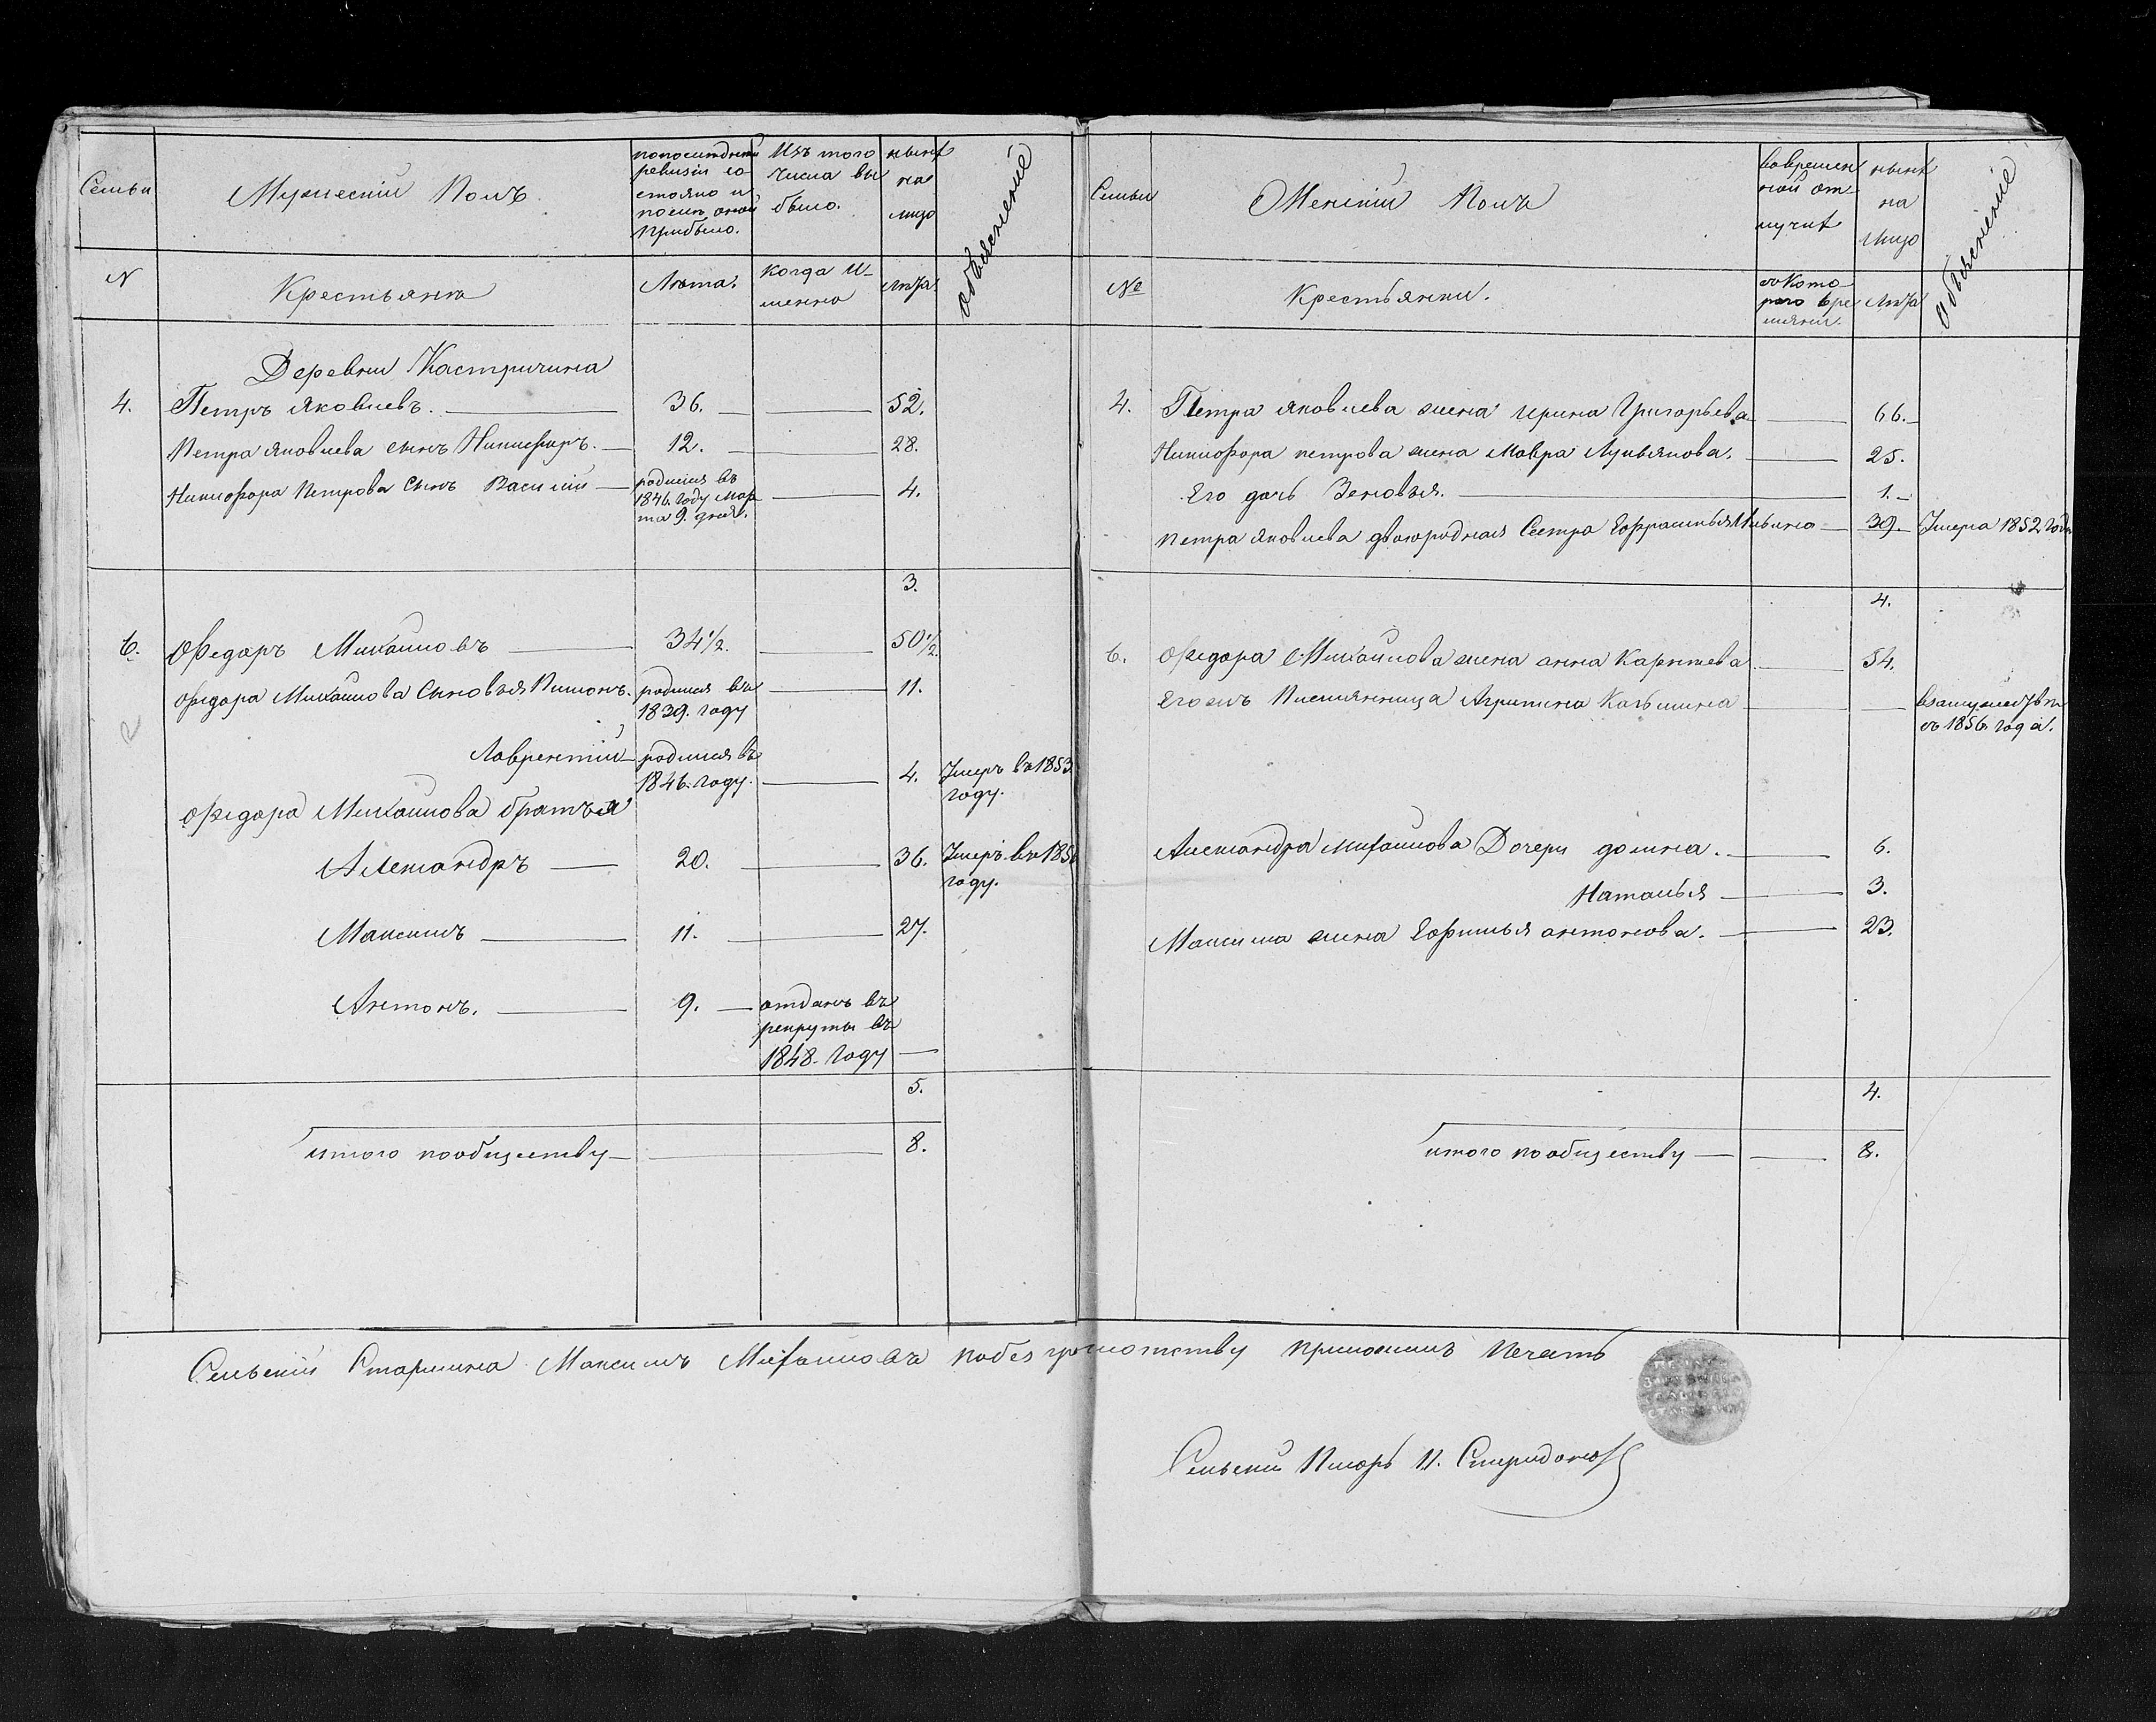 Семьи
Мужескій Полъ
попоследней
ревизіи со
стояло и
после оной
прибыло.
Изъ того
числа вы
было.
ныне
на
лицо
объясненіе
N
Крестьяна
Лета.
когда и-
менно
лета
Деревни Кастричина
4. Петръ Яковлевъ. 36. 52.
Петра Яковлева сынъ Никифоръ. 12. 28.
Никифора Петрова Сынъ Василій родился въ
1846. году мар
та 9. дня. 4.
3.
6. Федоръ Михайловъ 34½. 50½.
Федора Михайлова Сыновья Пимонъ. родился въ
1839. году 11.
Лаврентій родился въ
1846. году. 4. Умеръ въ 1853
году.
Федора Михайлова братья
Александръ 20. 36. Умеръ въ 185
году.
Максимъ 11. 27.
Антонъ. 9. отданъ въ
рекруты въ
1848. году
5.
итого пообществу 8.
Семьи
Женскій Полъ
вовремен
ной от-
лучке
ныне
на
лицо
объясненіе
№
Крестьянки.
со кото
раго вре
мяни.
лета
4. Петра Яковлева жена Ирина Григорьева 66.
Никифора петрова жена Мавра Лукьянова. 25.
Его дочь Зеновья. 1.
Петра Яковлева двоюродная Сестра Ефрасинья Ильина 39. Умерла 1852 года
4.
6. Федора Михайлова жена анна Карнеева 54.
Егожъ Племянница Агрипина Козьмина взамужестве
съ 1856 года.
Александра михайлова Дочери домна. 6.
Наталья 3.
Максима жена Ефимья антонова. 23.
4.
итого пообществу 8.
Сельскій Старшина Максимъ Михайловъ побезграмотству приложилъ Печать
Сельскій Писарь И. Спиридоновъ